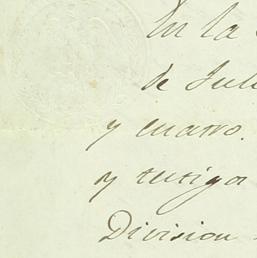 En la
de Juli
y cuatro.
y testigos
Division